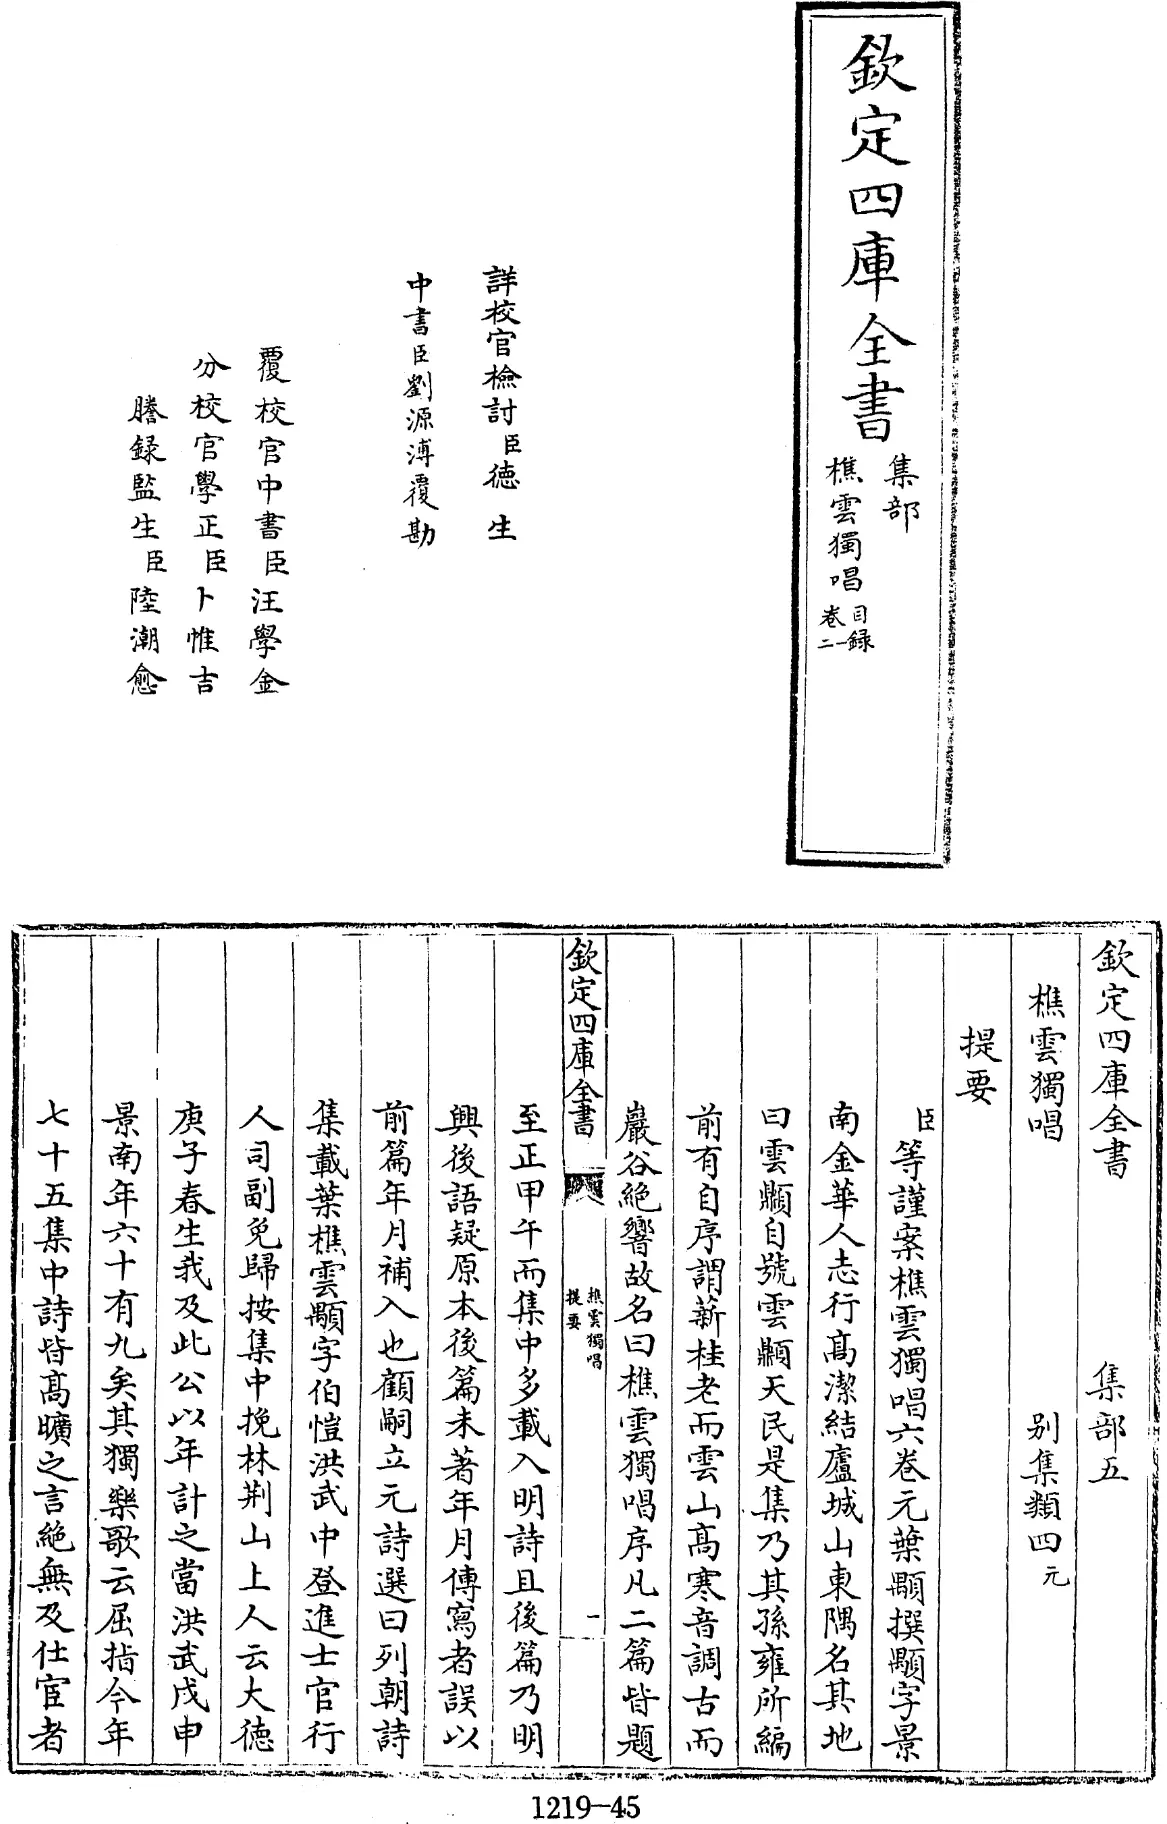 欽定四庫全書
集部
樵雲獨唱
目録
卷一二
詳校官檢討臣德生
中書臣劉源溥覆勘
覆校官中書臣汪學金
分校官學正臣卜惟吉
謄録監生臣陸潮愈
欽定四庫全書 集部五
樵雲獨唱 别集類四元
提要
臣等謹案樵雲獨唱六卷元葉顒撰顒字景
南金華人志行髙潔結廬城山東隅名其地
曰雲顒自號雲顒天民是集乃其孫雍所編
前有自序謂薪桂老而雲山髙寒音調古而
巖谷絶響故名曰樵雲獨唱序凡二篇皆題
欽定四庫全書
樵雲獨唱
提要
一
至正甲午而集中多載入明詩且後篇乃明
興後語疑原本後篇未著年月傳寫者誤以
前篇年月補入也顧嗣立元詩選曰列朝詩
集載葉樵雲顒字伯愷洪武中登進士官行
人司副免歸按集中挽林荆山上人云大徳
庚子春生我及此公以年計之當洪武戊申
景南年六十有九矣其獨樂歌云屈指今年
七十五集中詩皆髙曠之言絶無及仕宦者
1219-45